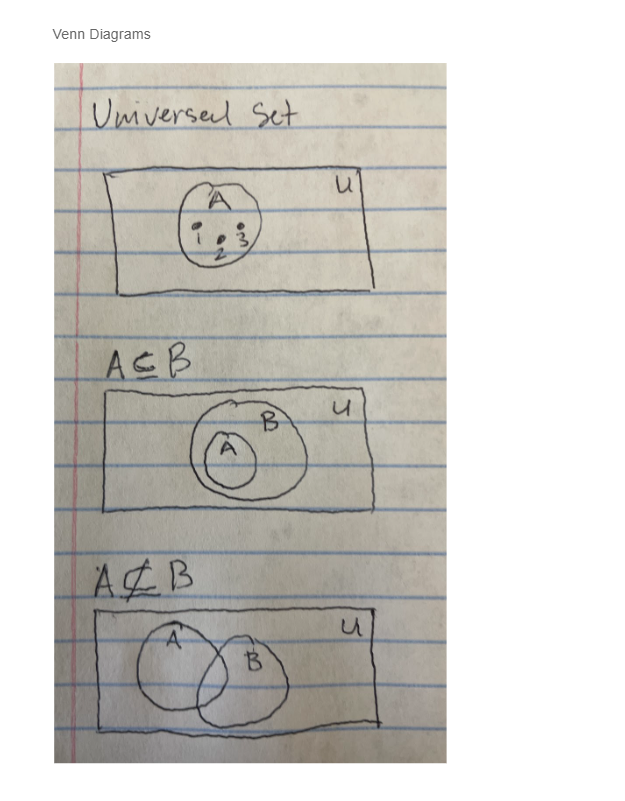 Venn Diagrams
Universal Set
U
A
1 2 3
A ⊆ B
U
B
A
A ⊈ B
U
A
B